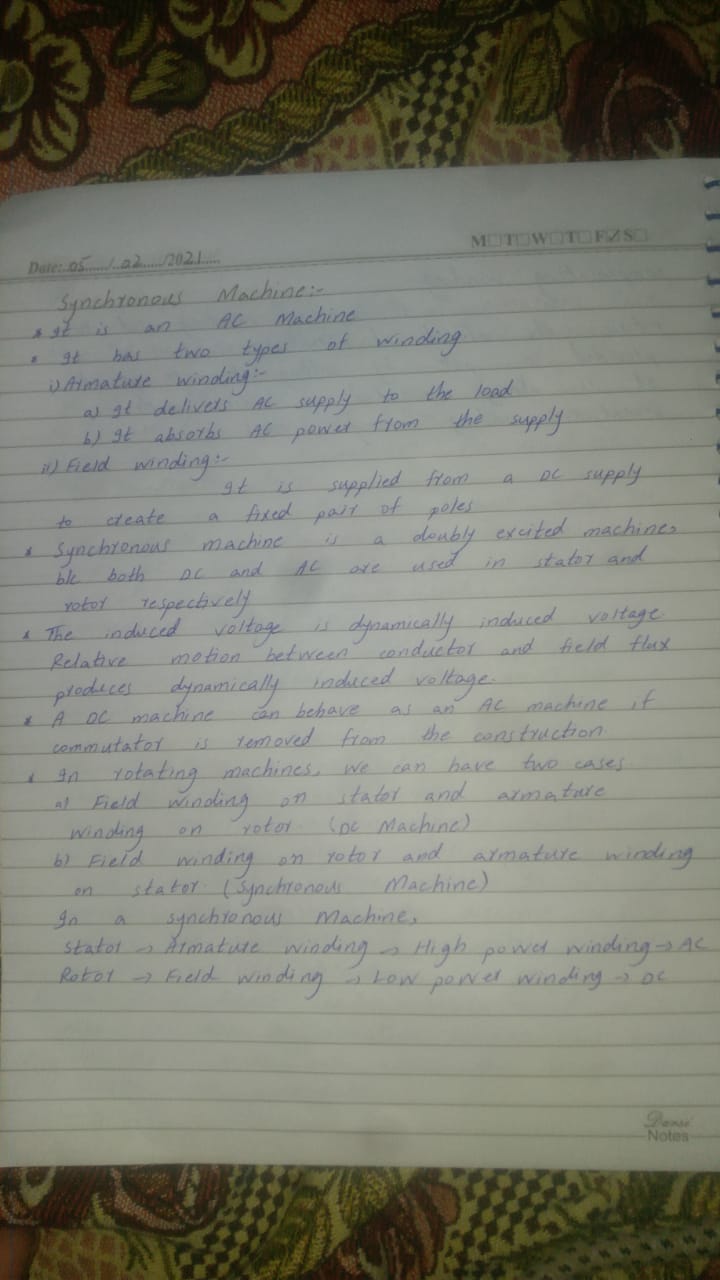 M☐T☐W☐T☐F☑S☐
Date:..05...../..02...../2021....
Synchronous Machine:-
* It is an AC Machine
* It has two types of winding
i) Armature winding:-
a) It delivers AC supply to the load
b) It absorbs AC power from the supply
ii) Field winding:-
It is supplied from a DC supply
to create a fixed pair of poles
* Synchronous machine is a doubly excited machine,
b/c both DC and AC are used in stator and
rotor respectively
* The induced voltage is dynamically induced voltage.
Relative motion between conductor and field flux
produces dynamically induced voltage.
* A DC machine can behave as an AC machine if
commutator is removed from the construction.
* In rotating machines, we can have two cases
a) Field winding on stator and armature
winding on rotor. (DC Machine)
b) Field winding on rotor and armature winding
on stator. (Synchronous Machine)
In a synchronous Machine,
Stator → Armature winding → High power winding → AC
Rotor → Field winding → Low power winding → DC
Danse
Notes